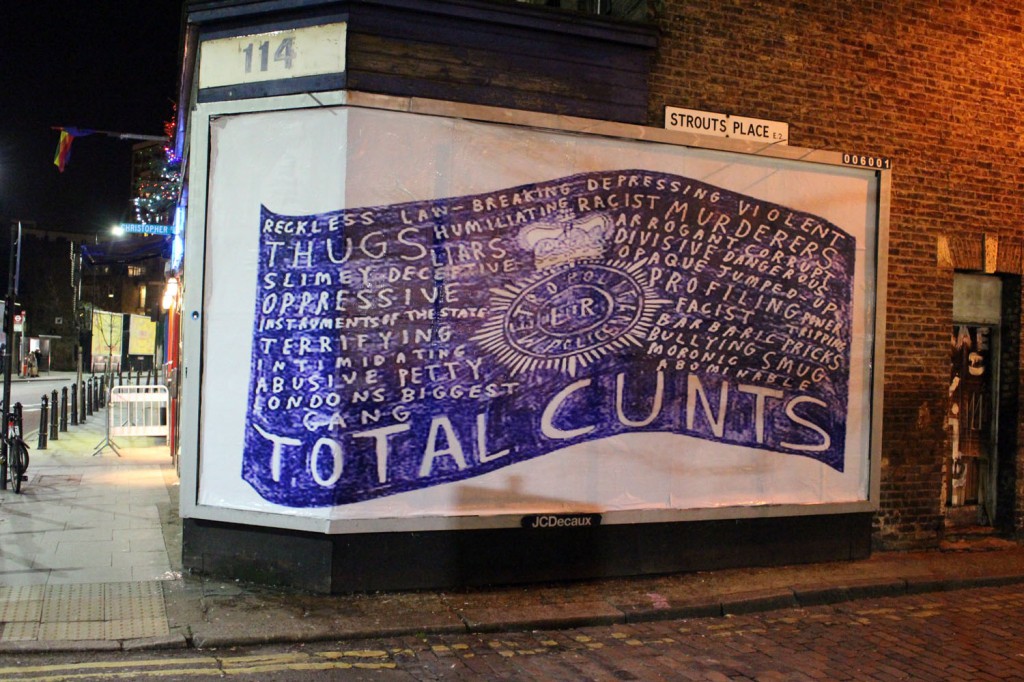 114
STROUTS PLACE E.2
006001
CHRISTOPHER
RECKLESS LAW-BREAKING DEPRESSING VIOLENT
THUGS HUMILIATING RACIST MURDERERS
LIARS
ARROGANT CORRUPT
SLIMEY DECEPTIVE
DIVISIVE DANGEROUS
OPPRESSIVE
OPAQUE JUMPED-UP
INSTRUMENTS OF THE STATE
PROFILING POWER
TERRIFYING
FACIST TRIPPING
INTIMIDATING
BARBARIC PRICKS
ABUSIVE PETTY
BULLYING SMUG
LONDONS BIGGEST
MORONIC
GANG
ABOMINABLE
METROPOLITAN
ER
POLICE
TOTAL CUNTS
JCDecaux